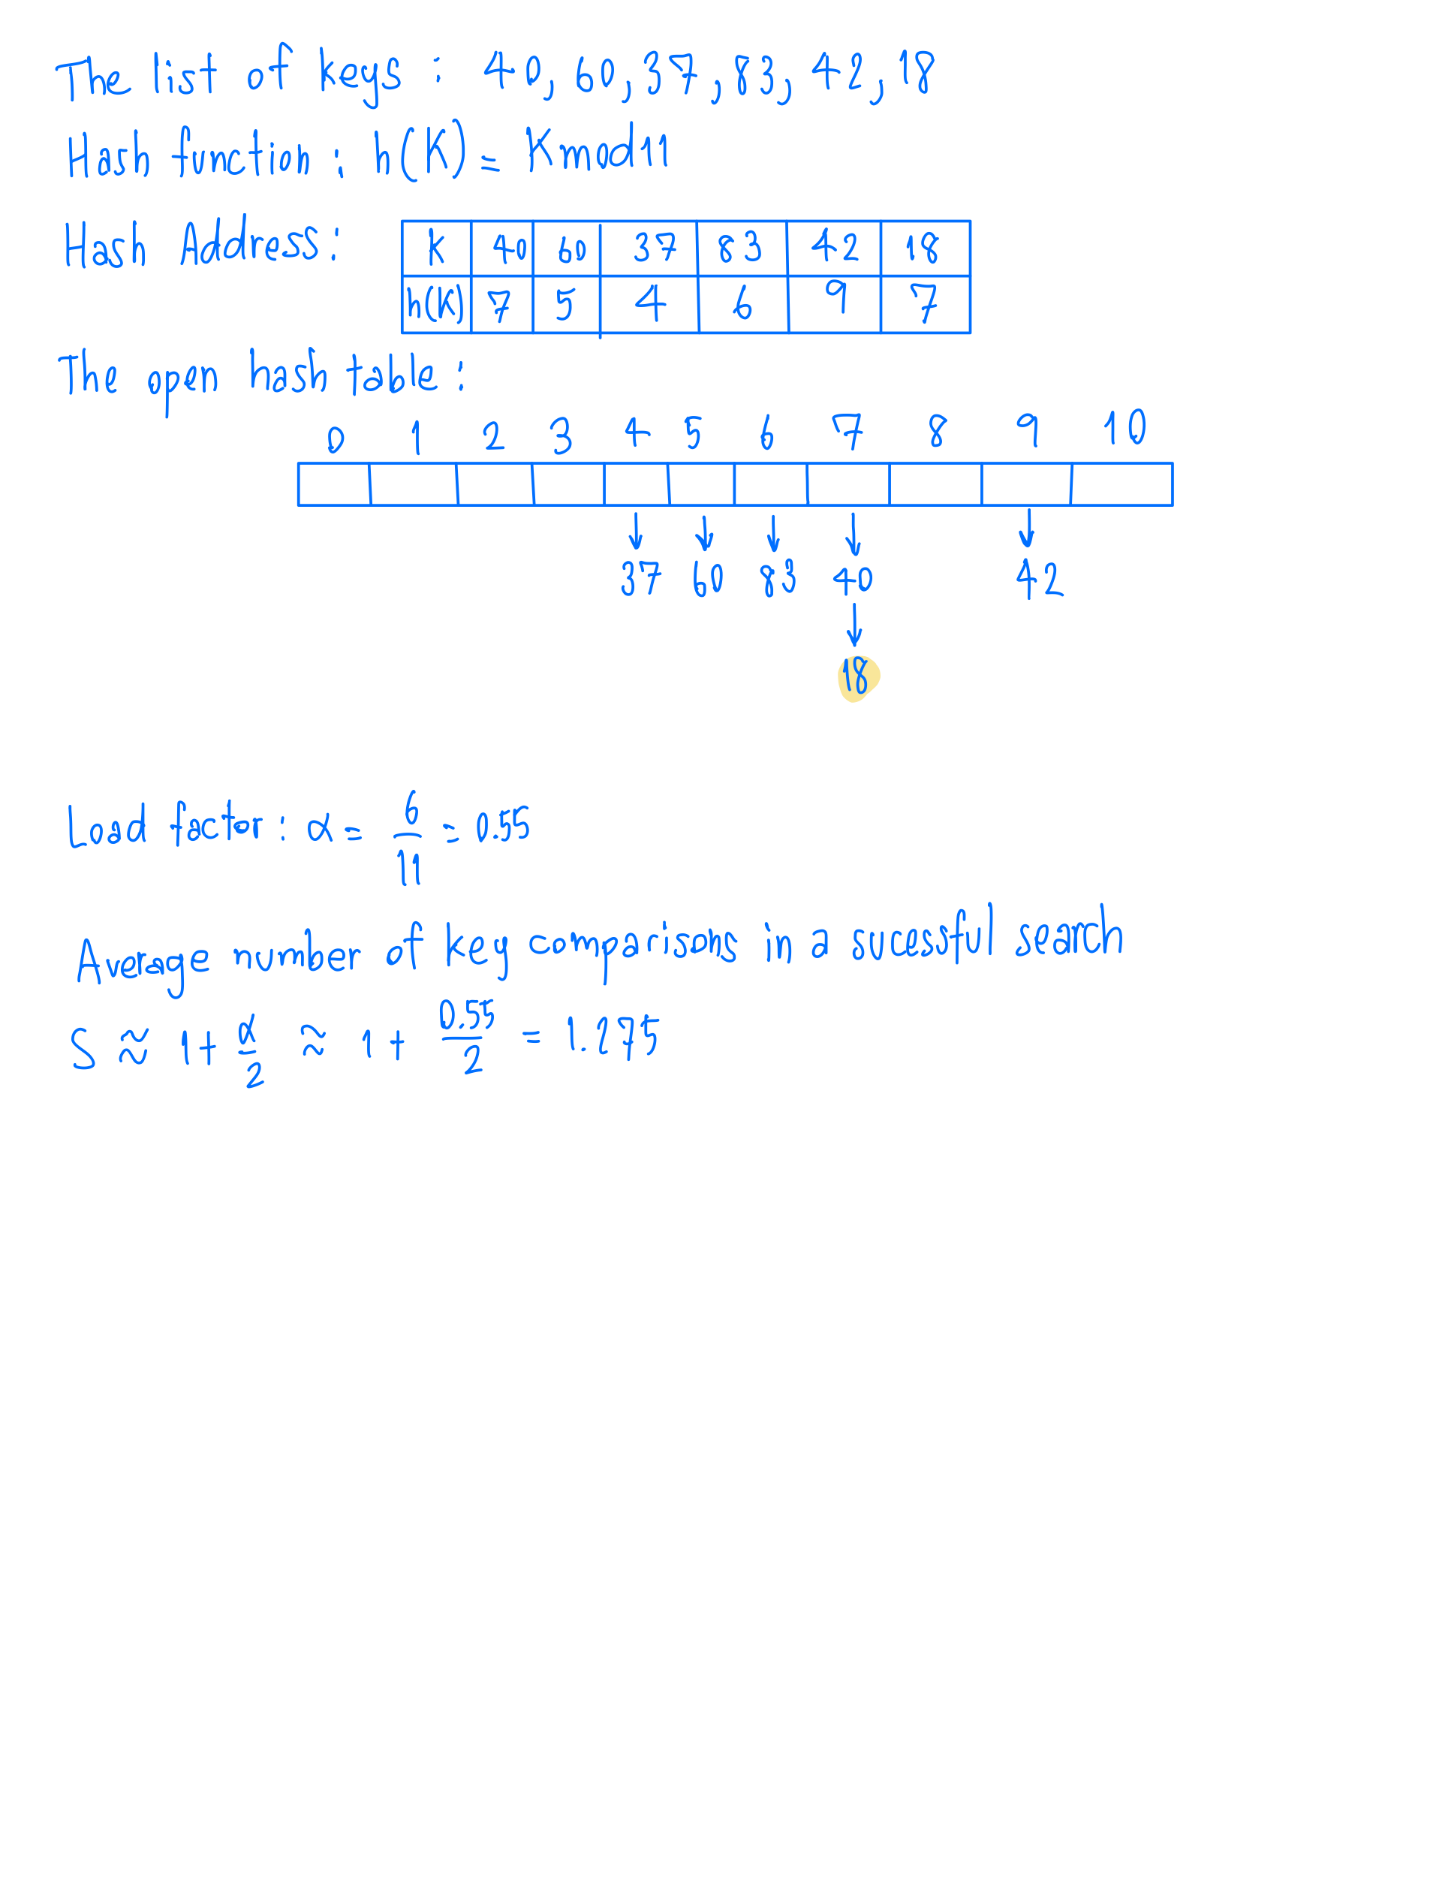 The list of keys : 40, 60, 37, 83, 42, 18
Hash function : h(K) = K mod 11
Hash Address :
K 40 60 37 83 42 18
h(K) 7 5 4 6 9 7
The open hash table :
0 1 2 3 4 5 6 7 8 9 10
↓ ↓ ↓ ↓ ↓
37 60 83 40 42
↓
18
Load factor : α = 6/11 = 0.55
Average number of key comparisons in a sucessful search
S ≈ 1 + α/2 ≈ 1 + 0.55/2 = 1.275